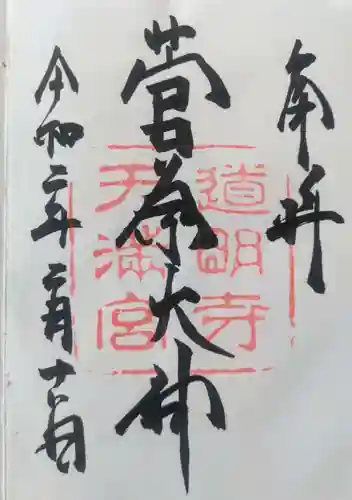 奉拝
道明寺
天満宮
菅公大神
令和二年二月十八日